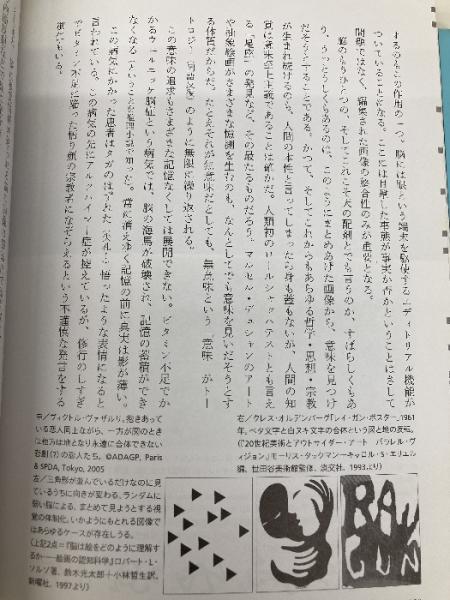 するのもこの作用の一つ。脳には眼という端末を駆使するエディトリアル機能が
ついていることになる。ここには目撃した事態が事実か否かということはさして
問題ではなく、編集された画像の整合性のみが重要となる。
脳のもうひとつの、そしてこれこそ天の配剤とでも言うのか、すばらしくもあ
り、うっとうしくもあるのは、このようにまとめあげた画像から、意味を見つけ
だそうとすることである。かつて、そしてこれからもあらゆる哲学・思想・宗教
が生まれ続けるのも、人間の本性と言ってしまったら身も蓋もないが、人間の知
覚は意味至上主義であることは確かだ。人類初のロールシャッハテストとも言え
る「星座」の発見など、その最たるものだろう。マルセル・デュシャンのアート
や抽象絵画がさまざまな憶測を生むのも、なんとしてでも意味を見いだそうとす
る体質だからだ。たとえそれが無意味だとしても、無意味という〝意味〟がトー
トロジー(同語反復)のように無限に繰り返される。
この意味の追求もさまざまた記憶なくしては展開できない。ビタミン不足でか
かるウェルニッケ脳症という病気では、脳の海馬が破壊され、記憶の蓄積ができ
なくなる(ということを推理小説で知った)。常に消えゆく記憶の前に真実は影が薄い。
この病気にかかった患者はタガのはずれた(失礼!)悟ったような表情になると
言われている。この病気の先にアルツハイマー症が控えているが、修行のしすぎ
でビタミン不足に陥った悟り顔の宗教者になぞらえるという不謹慎な発言をする
右/クレス・オルデンバーグ「レイ・ガン・ポスター」1961
年。ベタ文字と白ヌキ文字の合体という図と地の反転。
(『20世紀美術とアウトサイダー・アート パラレル・ヴ
ィジョン』モーリス・タックマン+キャロル・S・エリエル
編、世田谷美術館監修、淡交社、1993より)
中/ヴィクトル・ヴァザルリ。抱きあって
いる恋人同士ながら、一方が図のとき
は相方は地となり永遠に合体できない
悲劇(?)の恋人たち。©ADAGP, Paris
& SPDA, Tokyo, 2005
左/三角形が並んでいるだけなのに見
ているうちに向きが変わる。ランダムに
弱い脳による、まとめて見ようとする視
覚の体制化。いかようにもとれる図像で
はあらゆるケースが存在しうる。
(上記2点=『脳は絵をどのように理解す
るか――絵画の認知科学』ロバート・L・
ソルソ著、鈴木光太郎+小林哲生訳、
新曜社、1997より)
RAY
GUN